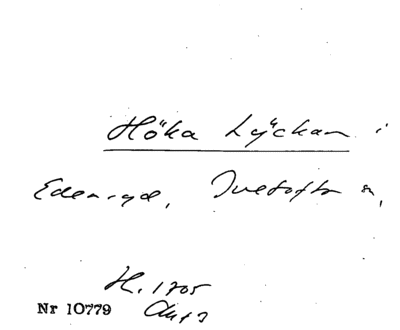 Höka Lyckan i
Edenryd, Ivetofta sn,
H. 1705
Nr 10779